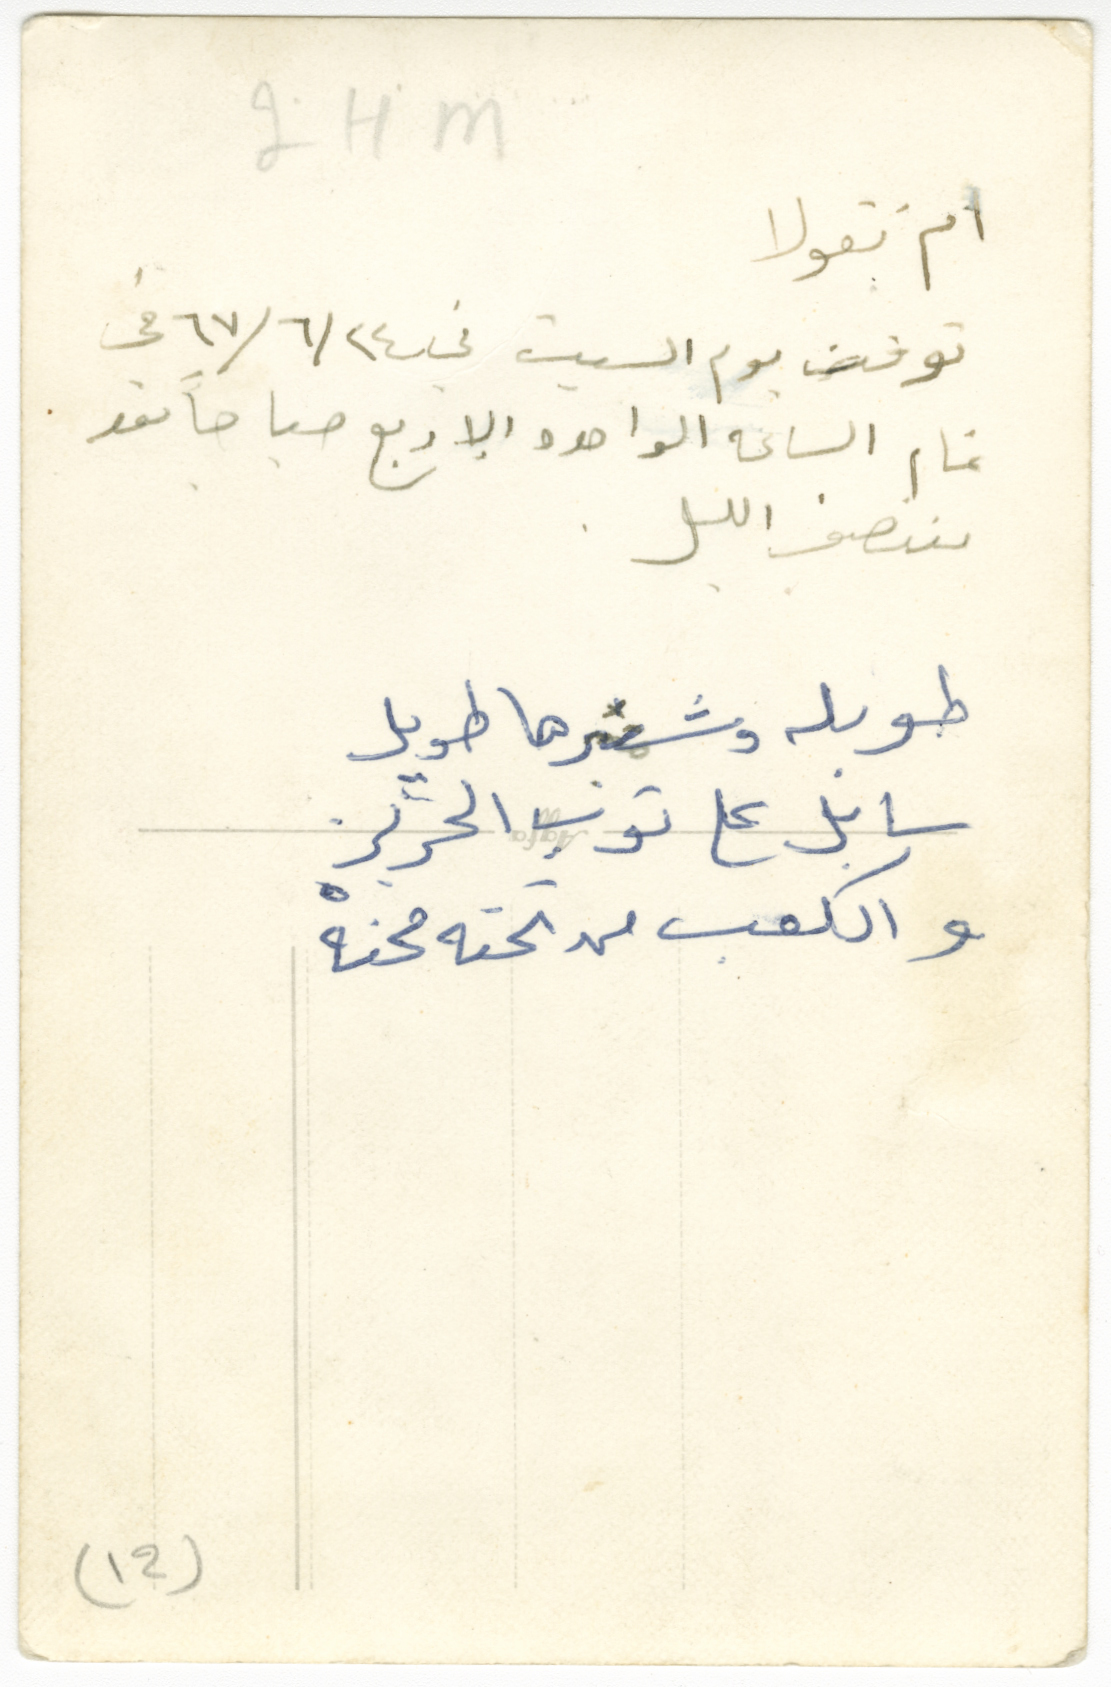 J H M
ام نقولا
توفت يوم السبت في ٢٤/٦/٦٧ في
تمام الساعه الواحده الا ربع صباحاً بعد
منتصف الليل.
طويله وشعرها طويل
سابل على توب الحرير
والكعب من تحته محنه
Agfa
(12)